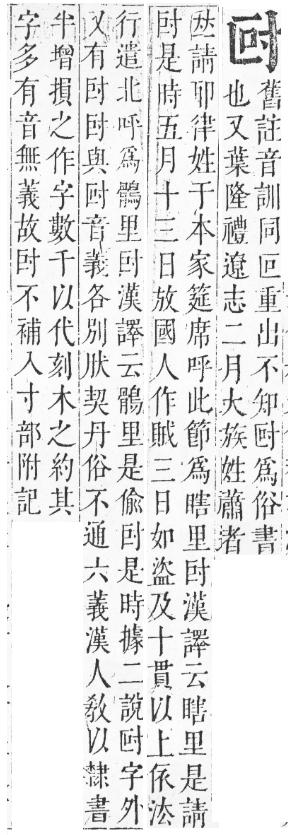 尀
舊註音訓同叵重出不知尀爲俗書
也又葉隆禮遼志二月大族姓蕭者
竝請耶律姓于本家筵席呼此節爲瞎里尀漢譯云瞎里是請
尀是時五月十三日放國人作賊三日如盜及十貫以上依法
行遣北呼爲鶻里尀漢譯云鶻里是偷尀是時據二說尀字外
又有尀尀與尀音義各別肰契丹俗不通六義漢人敎以隸書
半增損之作字數千以代刻木之約其
字多有音無義故尀不補入寸部附記